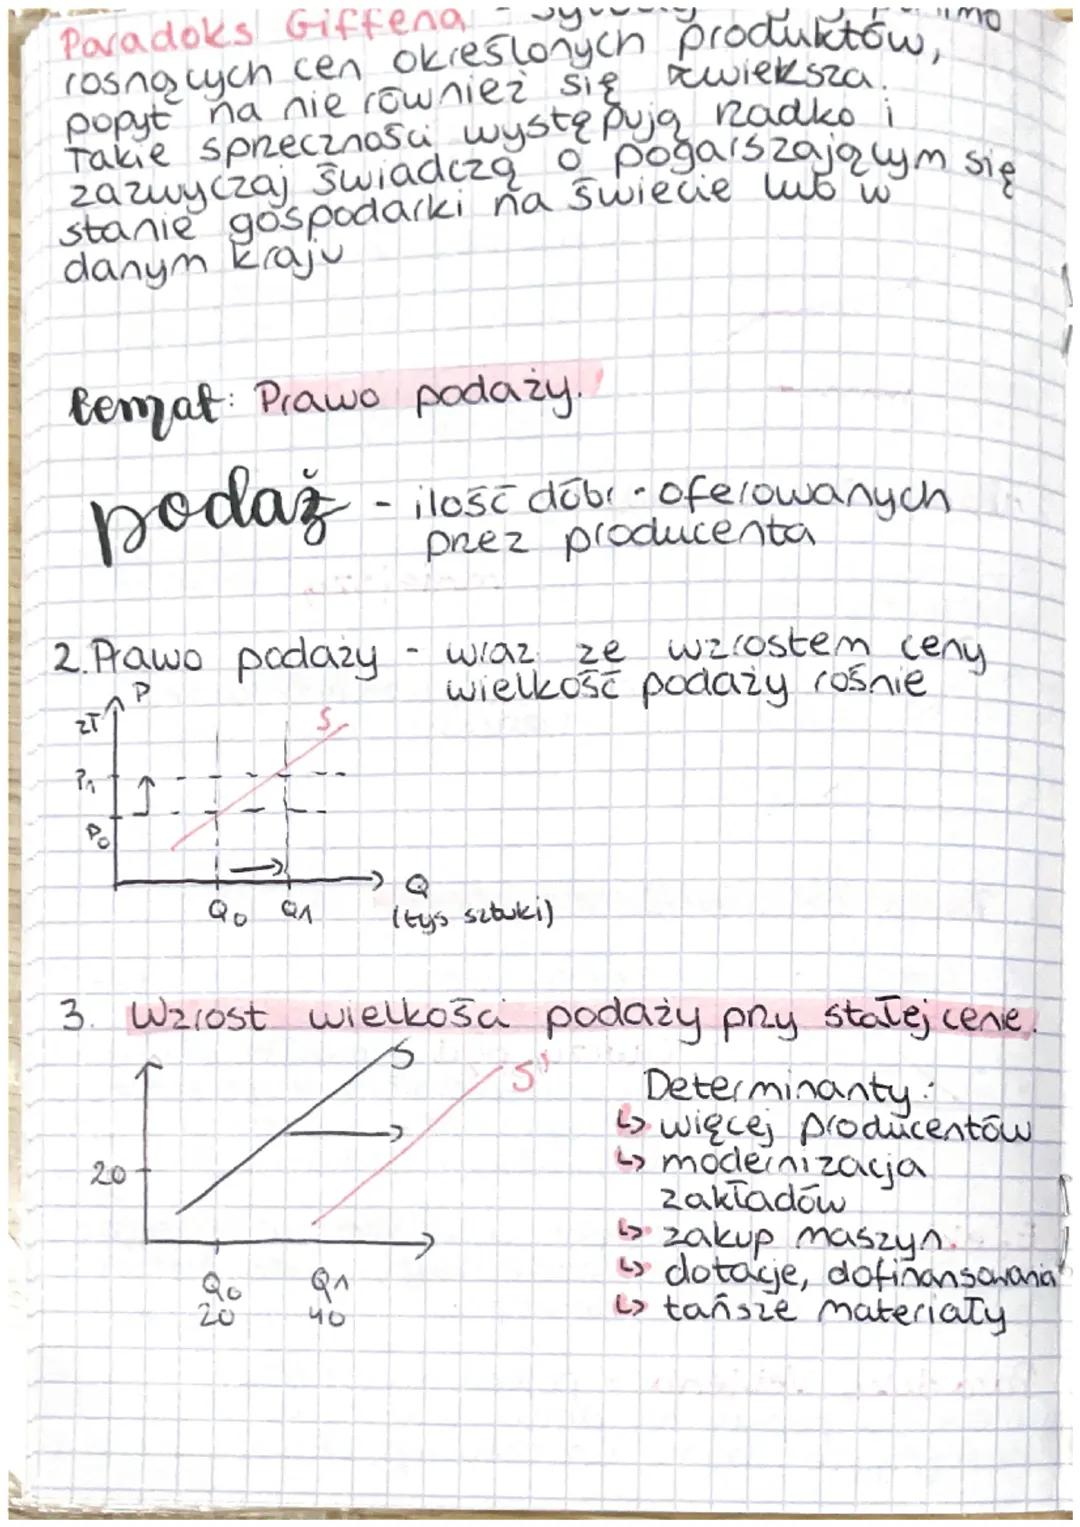 Paradoks Giffena -
rosnących cen określonych produktów,
popyt na nie również się zwiększa.
Takie sprzeczności występują rzadko i
zazwyczaj świadczą o pogarszającym się
stanie gospodarki na świecie lub w
danym kraju
temat: Prawo podaży.
podaż - ilość dóbr oferowanych
przez producenta
2. Prawo podaży - wraz ze wzrostem ceny
wielkość podaży rośnie
zł P
S
P1
P0
Q0 Q1 Q
(tys sztuki)
3. Wzrost wielkości podaży przy stałej cenie.
S S'
20
Q0 Q1
20 40
Determinanty:
↳ więcej producentów
↳ modernizacja
zakładów
↳ zakup maszyn.
↳ dotacje, dofinansowania
↳ tańsze materiały